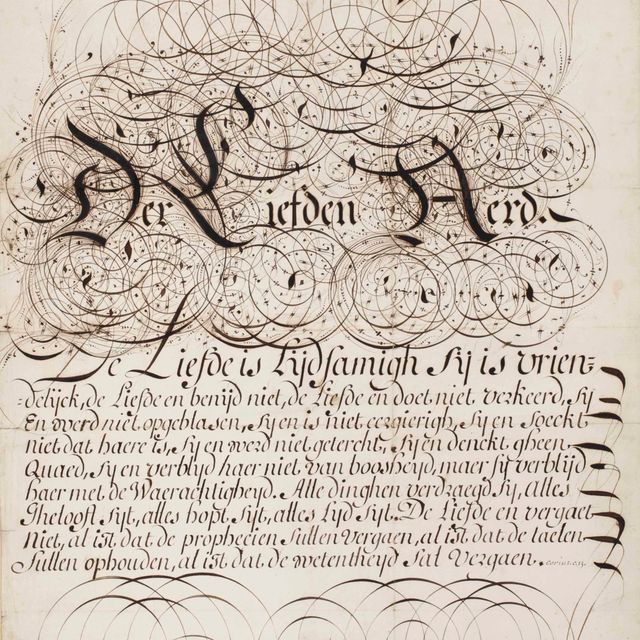 Der Liefden Aerd.
De Liefde is lijdsamigh sij is vrien=
=delijck, de Liefde en benijd niet, de Liefde en doet niet verkeerd, sij
En werd niet opgeblasen, sij en is niet eergierigh, sij en soeckt
niet dat haere is, sij en werd niet getercht, sij en denckt gheen
Quaed, sij en verblijd haer niet van boosheyd, maer sij verblijd
haer met de Waerachtigheyd. Alle dinghen verdraegd sij, alles
Ghelooft sijt, alles hopt sijt, alles lijd sijt. De Liefde en vergaet
Niet, al ist dat de prophecien sullen vergaen, al ist dat de taelen
Sullen ophouden, al ist dat de wetentheyd sal vergaen.